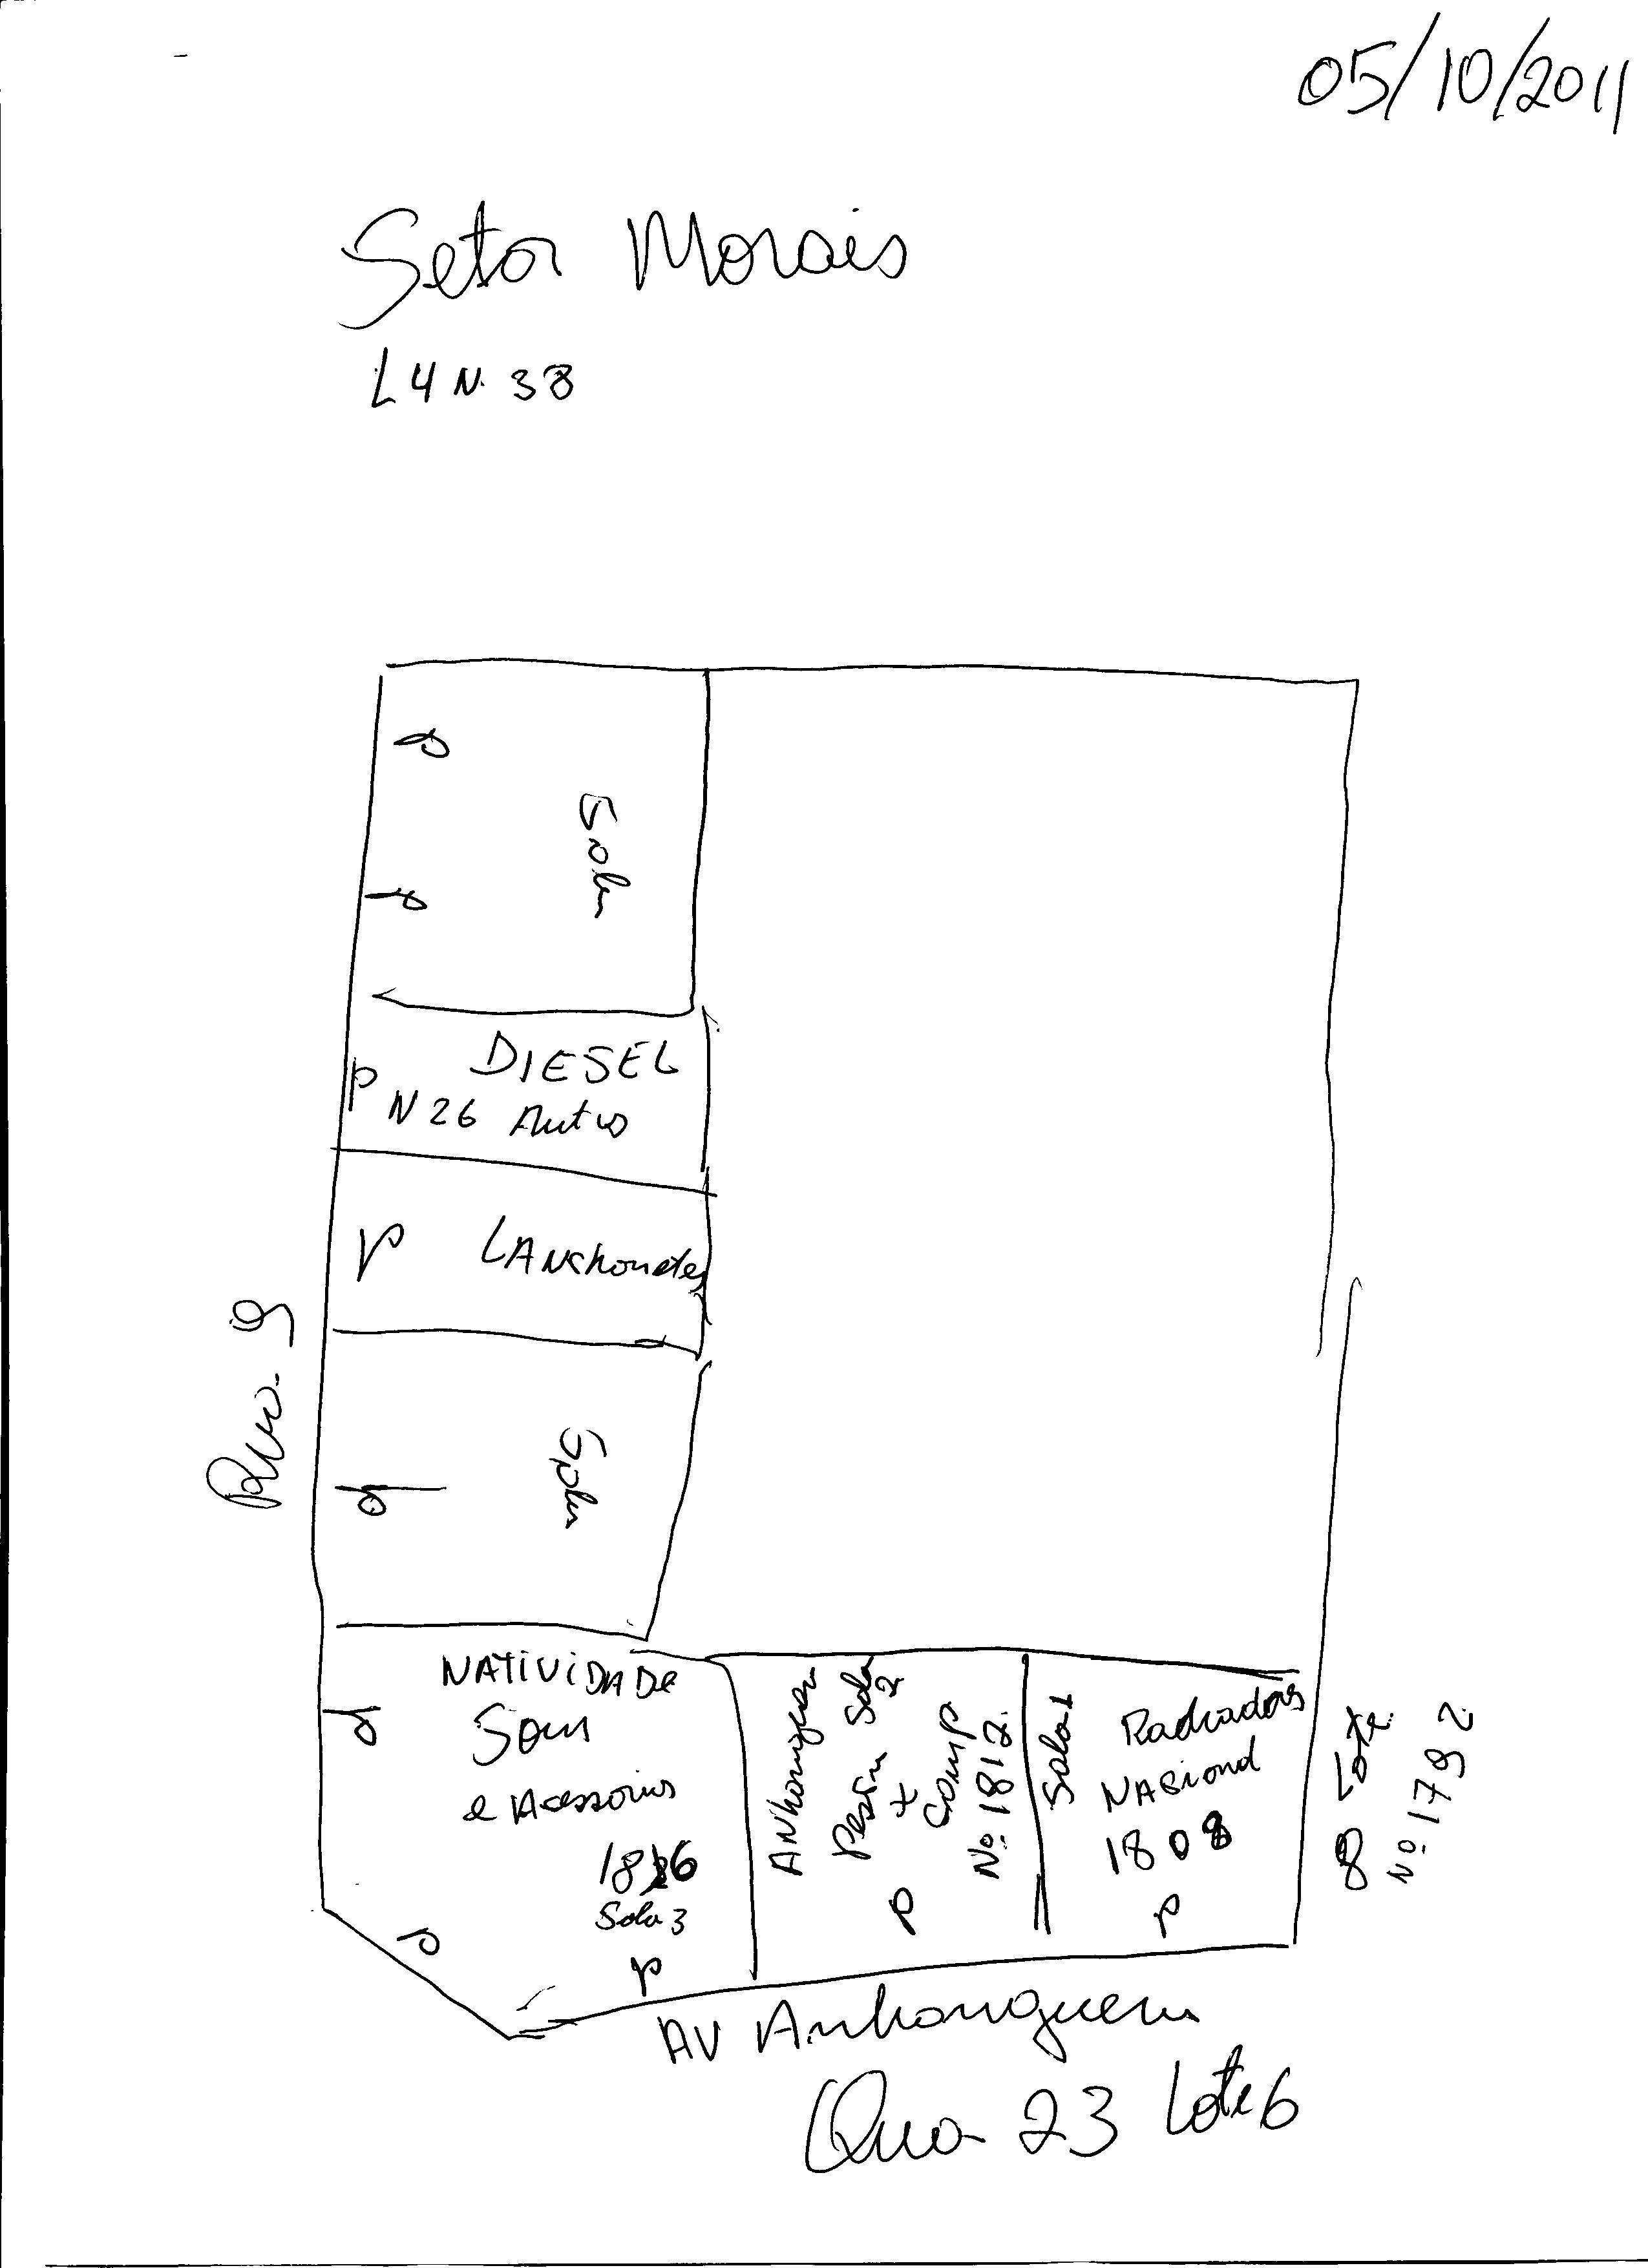 05/10/2011
Setor Morais
L4 N. 38
P
Sala
P
DIESEL
P N 26 Autos
P LANchonetes
Rua 9
Sala
P
NATIVIDADe
Som
e Acessorios
1816
Sala 3
P
P
P
ANhanguera
Pesin Sala 2
+
Comp
No. 1812.
P
Sala 1
Radiadores
NAcional
1808
P
8 Lote
No. 1792
AV Anhanguera
Qua 23 Lote 6